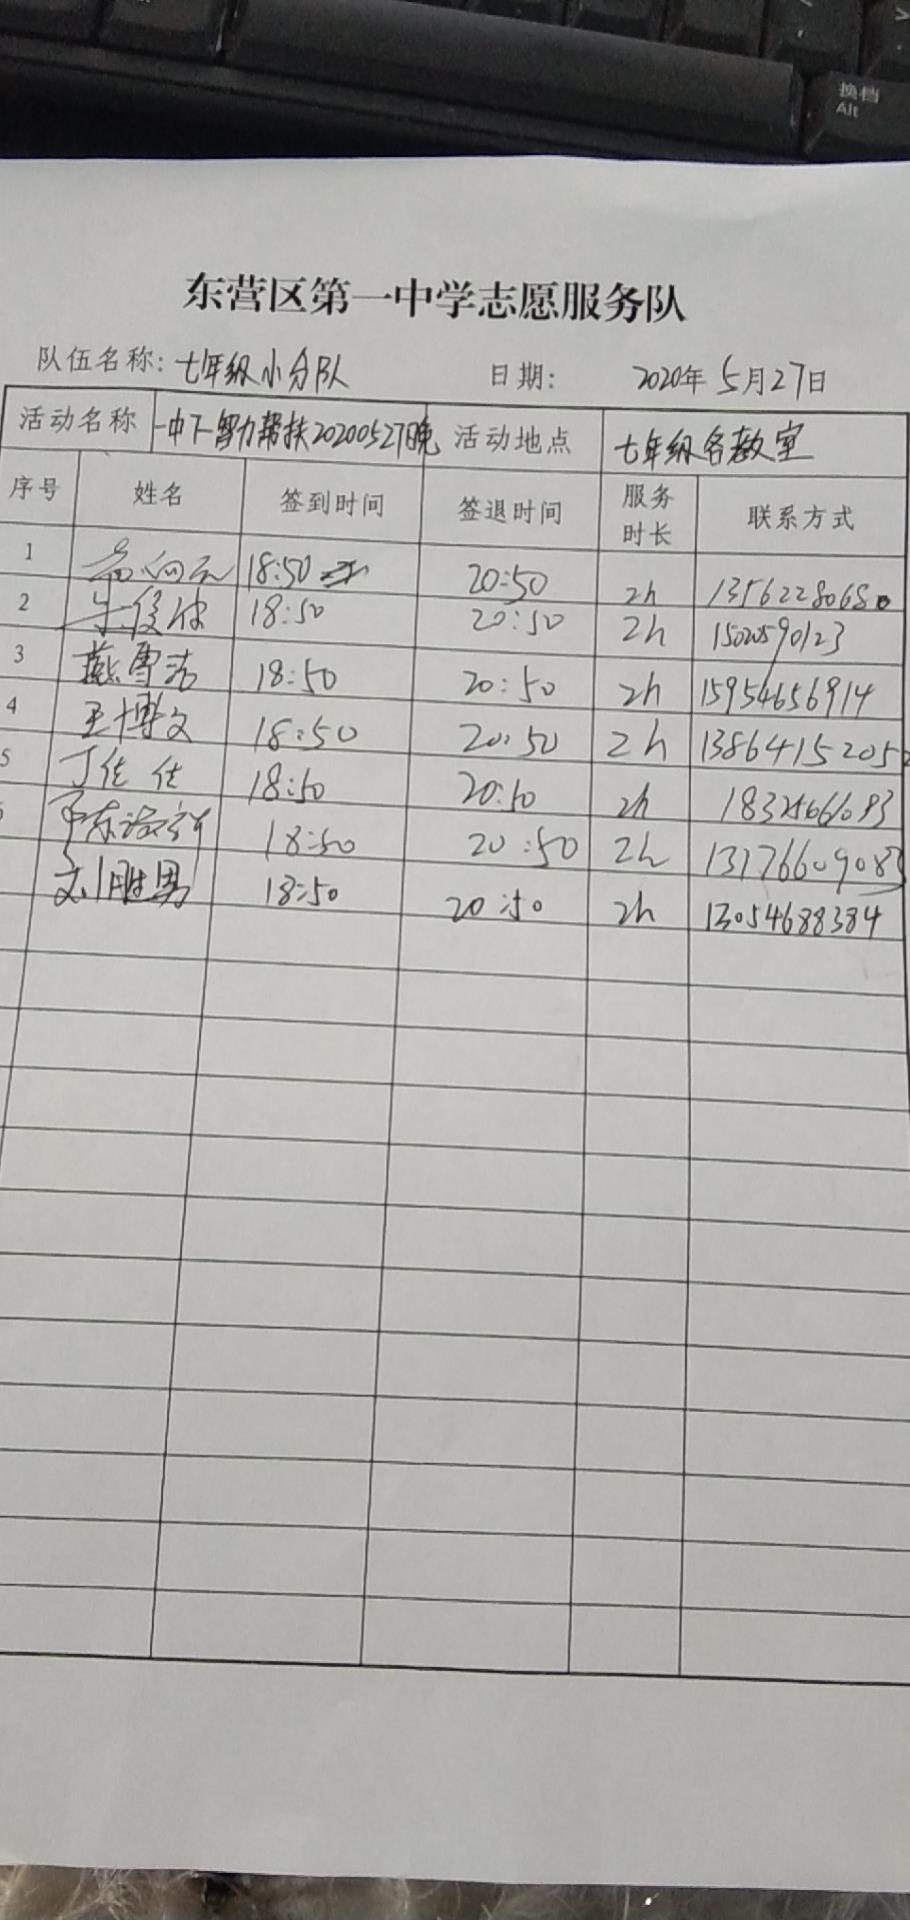 换档
Alt
东营区第一中学志愿服务队
队伍名称: 七年级小分队 日期: 2020年5月27日
活动名称 一中下-智力帮扶20200527晚 活动地点 七年级各教室
序号 姓名 签到时间 签退时间 服务时长 联系方式
1 18:50 20:50 2h 1356228068
2 18:50 20:50 2h 15020590123
3 燕雪洁 18:50 20:50 2h 15954656914
4 王博文 18:50 20:50 2h 13864152052
5 丁佳佳 18:50 20:50 2h
18:50 20:50 2h 13176609083
刘胜男 18:50 20:50 2h 13054688384